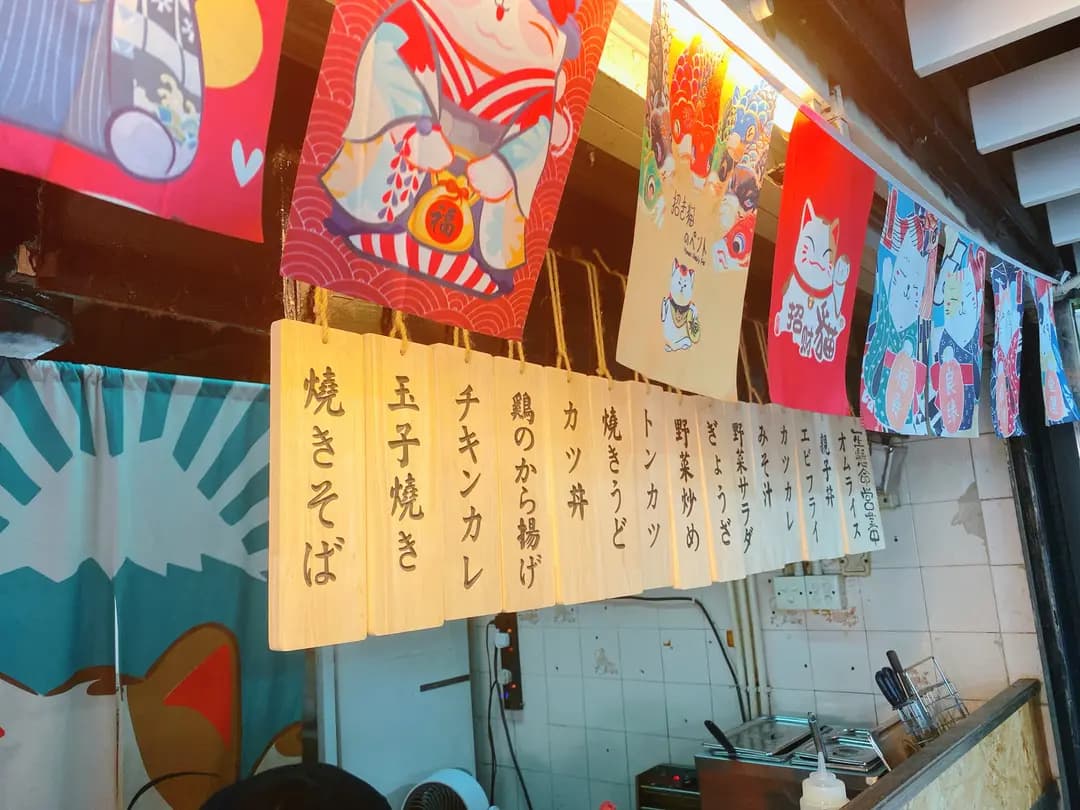 福
招き猫
のペント
招財猫
焼きそば
玉子焼き
チキンカレ
鶏のから揚げ
カツ丼
焼きうど
トンカツ
野菜炒め
ぎょうざ
野菜サラダ
みそ汁
カツカレ
エビフライ
親子丼
オムライス
営業中